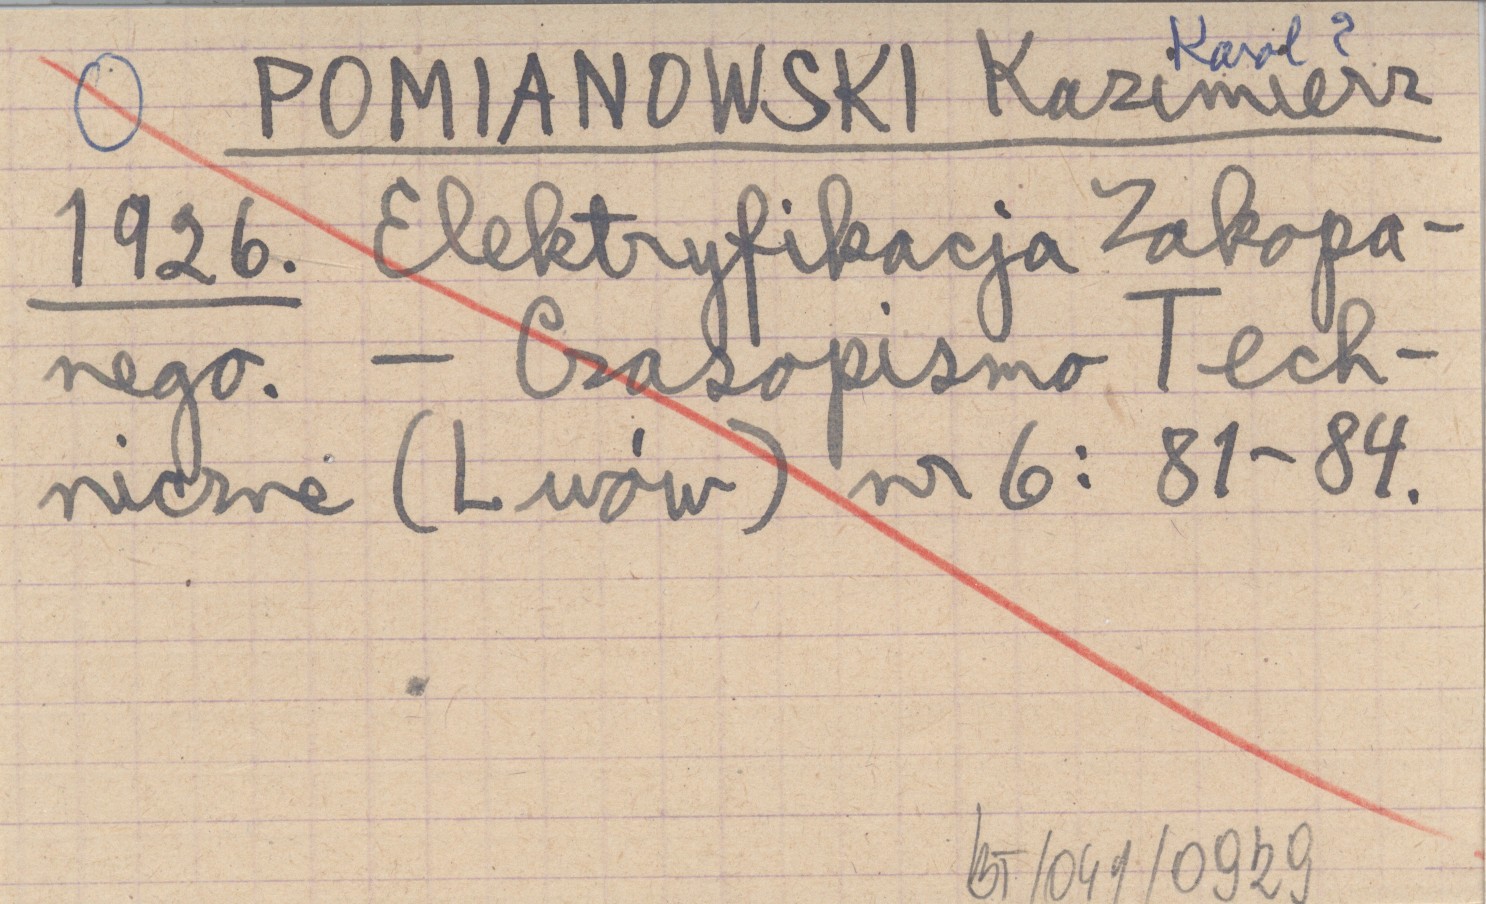 Karol ?
POMIANOWSKI Kazimierz
1926. Elektryfikacja Zakopa-
nego. — Czasopismo Tech-
niczne (Lwów) nr 6: 81-84.
BT/041/0929